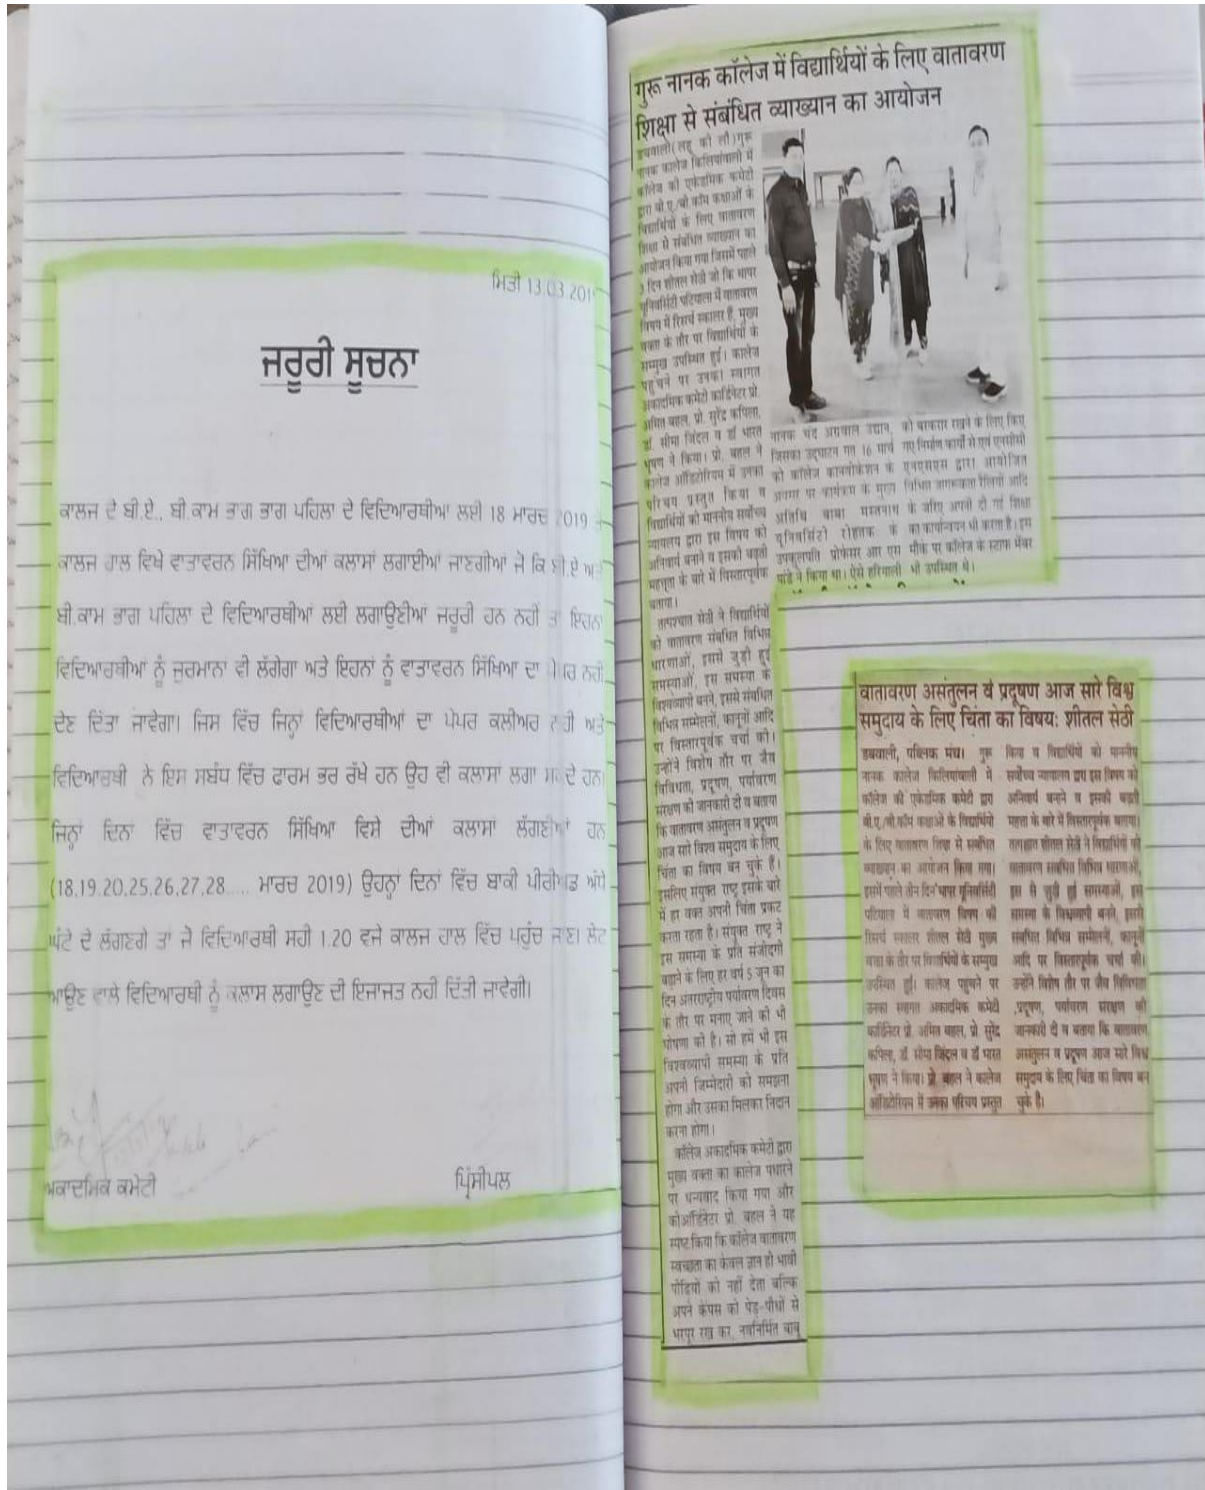 ਮਿਤੀ 13.03.201
ਜਰੂਰੀ ਸੂਚਨਾ
ਕਾਲਜ ਦੇ ਬੀ.ਏ., ਬੀ.ਕਾਮ ਭਾਗ ਭਾਗ ਪਹਿਲਾ ਦੇ ਵਿਦਿਆਰਥੀਆ ਲਈ 18 ਮਾਰਚ 2019
ਕਾਲਜ ਹਾਲ ਵਿਖੇ ਵਾਤਾਵਰਨ ਸਿੱਖਿਆ ਦੀਆਂ ਕਲਾਸਾਂ ਲਗਾਈਆਂ ਜਾਣਗੀਆਂ ਜੋ ਕਿ ਬੀ.ਏ ਅਤੇ
ਬੀ.ਕਾਮ ਭਾਗ ਪਹਿਲਾ ਦੇ ਵਿਦਿਆਰਥੀਆਂ ਲਈ ਲਗਾਉਣੀਆਂ ਜਰੂਰੀ ਹਨ ਨਹੀ ਤਾਂ ਇਹਨਾ
ਵਿਦਿਆਰਥੀਆਂ ਨੂੰ ਜੁਰਮਾਨਾਂ ਵੀ ਲੱਗੇਗਾ ਅਤੇ ਇਹਨਾਂ ਨੂੰ ਵਾਤਾਵਰਨ ਸਿੱਖਿਆ ਦਾ ਪੇਪਰ ਨਹੀ
ਦੇਣ ਦਿੱਤਾ ਜਾਵੇਗਾ। ਜਿਸ ਵਿੱਚ ਜਿਨ੍ਹਾਂ ਵਿਦਿਆਰਥੀਆਂ ਦਾ ਪੇਪਰ ਕਲੀਅਰ ਨਹੀ ਅਤੇ
ਵਿਦਿਆਰਥੀ ਨੇ ਇਸ ਸਬੰਧ ਵਿੱਚ ਫਾਰਮ ਭਰ ਰੱਖੇ ਹਨ ਉਹ ਵੀ ਕਲਾਸਾ ਲਗਾ ਸਕਦੇ ਹਨ।
ਜਿਨ੍ਹਾਂ ਦਿਨਾ ਵਿੱਚ ਵਾਤਾਵਰਨ ਸਿੱਖਿਆ ਵਿਸੇ ਦੀਆਂ ਕਲਾਸਾਂ ਲੱਗਣੀਆਂ ਹਨ
(18,19,20,25,26,27,28..... ਮਾਰਚ 2019) ਉਹਨ੍ਹਾਂ ਦਿਨਾਂ ਵਿੱਚ ਬਾਕੀ ਪੀਰੀਅਡ ਅੱਧੇ
ਘੰਟੇ ਦੇ ਲੱਗਣਗੇ ਤਾਂ ਜੋ ਵਿਦਿਆਰਥੀ ਸਹੀ 1.20 ਵਜੇ ਕਾਲਜ ਹਾਲ ਵਿੱਚ ਪਹੁੰਚ ਜਾਣ। ਲੇਟ
ਆਉਣ ਵਾਲੇ ਵਿਦਿਆਰਥੀ ਨੂੰ ਕਲਾਸ ਲਗਾਉਣ ਦੀ ਇਜਾਜਤ ਨਹੀ ਦਿੱਤੀ ਜਾਵੇਗੀ।
ਅਕਾਦਮਿਕ ਕਮੇਟੀ
ਪ੍ਰਿੰਸੀਪਲ
गुरू नानक कॉलेज में विद्यार्थियों के लिए वातावरण
शिक्षा से संबंधित व्याख्यान का आयोजन
डबवाली(लहू की लौ)गुरू
नानक कालेज किलियांवाली में
कॉलेज की एकेडमिक कमेटी
द्वारा बी.ए./बी.कॉम कक्षाओं के
विद्यार्थियों के लिए वातावरण
शिक्षा से संबंधित व्याख्यान का
आयोजन किया गया जिसमें पहले
3 दिन शीतल सेठी जो कि थापर
यूनिवर्सिटी पटियाला में वातावरण
विषय में रिसर्च स्कालर हैं, मुख्य
वक्ता के तौर पर विद्यार्थियों के
सम्मुख उपस्थित हुई। कालेज
पहुंचने पर उनका स्वागत
अकादमिक कमेटी कार्डिनेटर प्रो.
अमित बहल, प्रो. सुरेंद्र कपिला,
डॉ. सीमा जिंदल व डॉ भारत
भूषण ने किया। प्रो. बहल ने
कालेज ऑडिटोरियम में उनका
परिचय प्रस्तुत किया व
विद्यार्थियों को माननीय सर्वोच्च
न्यायलय द्वारा इस विषय को
अनिवार्य बनाने व इसकी बढ़ती
महत्ता के बारे में विस्तारपूर्वक
बताया।
तत्पश्चात सेठी ने विद्यार्थियों
को वातावरण संबंधित विभिन्न
धारणाओं, इससे जुड़ी हुई
समस्याओं, इस समस्या के
विश्वव्यापी बनने, इससे संबंधित
विभिन्न सम्मेलनों, कानूनों आदि
पर विस्तारपूर्वक चर्चा की।
उन्होंने विशेष तौर पर जैव
विविधता, प्रदूषण, पर्यावरण
संरक्षण की जानकारी दी व बताया
कि वातावरण असंतुलन व प्रदूषण
आज सारे विश्व समुदाय के लिए
चिंता का विषय बन चुके हैं।
इसलिए संयुक्त राष्ट्र इसके बारे
में हर वक्त अपनी चिंता प्रकट
करता रहता है। संयुक्त राष्ट्र ने
इस समस्या के प्रति संजीदगी
बढ़ाने के लिए हर वर्ष 5 जून का
दिन अंतराष्ट्रीय पर्यावरण दिवस
के तौर पर मनाए जाने को भी
घोषणा की है। सो हमें भी इस
विश्वव्यापी समस्या के प्रति
अपनी जिम्मेदारी को समझना
होगा और उसका मिलका निदान
करना होगा।
कॉलेज अकादमिक कमेटी द्वारा
मुख्य वक्ता का कालेज पधारने
पर धन्यवाद किया गया और
कोऑर्डिनेटर प्रो. बहल ने यह
स्पष्ट किया कि कॉलेज वातावरण
स्वच्छता का केवल ज्ञान ही भावी
पीढ़ियों को नहीं देता बल्कि
अपने कैंपस को पेड़-पौधों से
भरपूर रख कर, नवनिर्मित बाबू
नानक चंद अग्रवाल उद्यान,
जिसका उद्घाटन गत 16 मार्च
को कॉलेज कानवोकेशन के
अवसर पर कार्यक्रम के मुख्य
अतिथि बाबा मस्तनाथ
यूनिवर्सिटी रोहतक के
उपकुलपति प्रोफेसर आर एस
पांडे ने किया था। ऐसे हरियाली
को बरकरार रखने के लिए किए
गए निर्माण कार्यों से एवं एनसीसी
एनएसएस द्वारा आयोजित
विभिन्न जागरूकता रैलियों आदि
के जरिए अपनी दी गई शिक्षा
का कार्यान्वयन भी करता है। इस
मौके पर कॉलेज के स्टाफ मेंबर
भी उपस्थित थे।
वातावरण असंतुलन व प्रदूषण आज सारे विश्व
समुदाय के लिए चिंता का विषय: शीतल सेठी
डबवाली, पब्लिक मंच। गुरू
नानक कालेज किलियांवाली में
कॉलेज की एकेडमिक कमेटी द्वारा
बी.ए./बी.कॉम कक्षाओं के विद्यार्थियों
के लिए वातावरण शिक्षा से संबंधित
व्याख्यान का आयोजन किया गया।
इसमें पहले तीन दिन थापर यूनिवर्सिटी
पटियाला में वातावरण विषय की
रिसर्च स्कालर शीतल सेठी मुख्य
वक्ता के तौर पर विद्यार्थियों के सम्मुख
उपस्थित हुई। कालेज पहुंचने पर
उनका स्वागत अकादमिक कमेटी
कार्डिनेटर प्रो. अमित बहल, प्रो. सुरेंद्र
कपिला, डॉ. सीमा जिंदल व डॉ भारत
भूषण ने किया। प्रो. बहल ने कालेज
ऑडिटोरियम में उनका परिचय प्रस्तुत
किया व विद्यार्थियों को माननीय
सर्वोच्च न्यायालय द्वारा इस विषय को
अनिवार्य बनाने व इसकी बढ़ती
महत्ता के बारे में विस्तारपूर्वक बताया।
तत्पश्चात शीतल सेठी ने विद्यार्थियों को
वातावरण संबंधित विभिन्न धारणाओं,
इस से जुड़ी हुई समस्याओं, इस
समस्या के विश्वव्यापी बनने, इससे
संबंधित विभिन्न सम्मेलनों, कानूनों
आदि पर विस्तारपूर्वक चर्चा की।
उन्होंने विशेष तौर पर जैव विविधता
,प्रदूषण, पर्यावरण संरक्षण की
जानकारी दी व बताया कि वातावरण
असंतुलन व प्रदूषण आज सारे विश्व
समुदाय के लिए चिंता का विषय बन
चुके है।